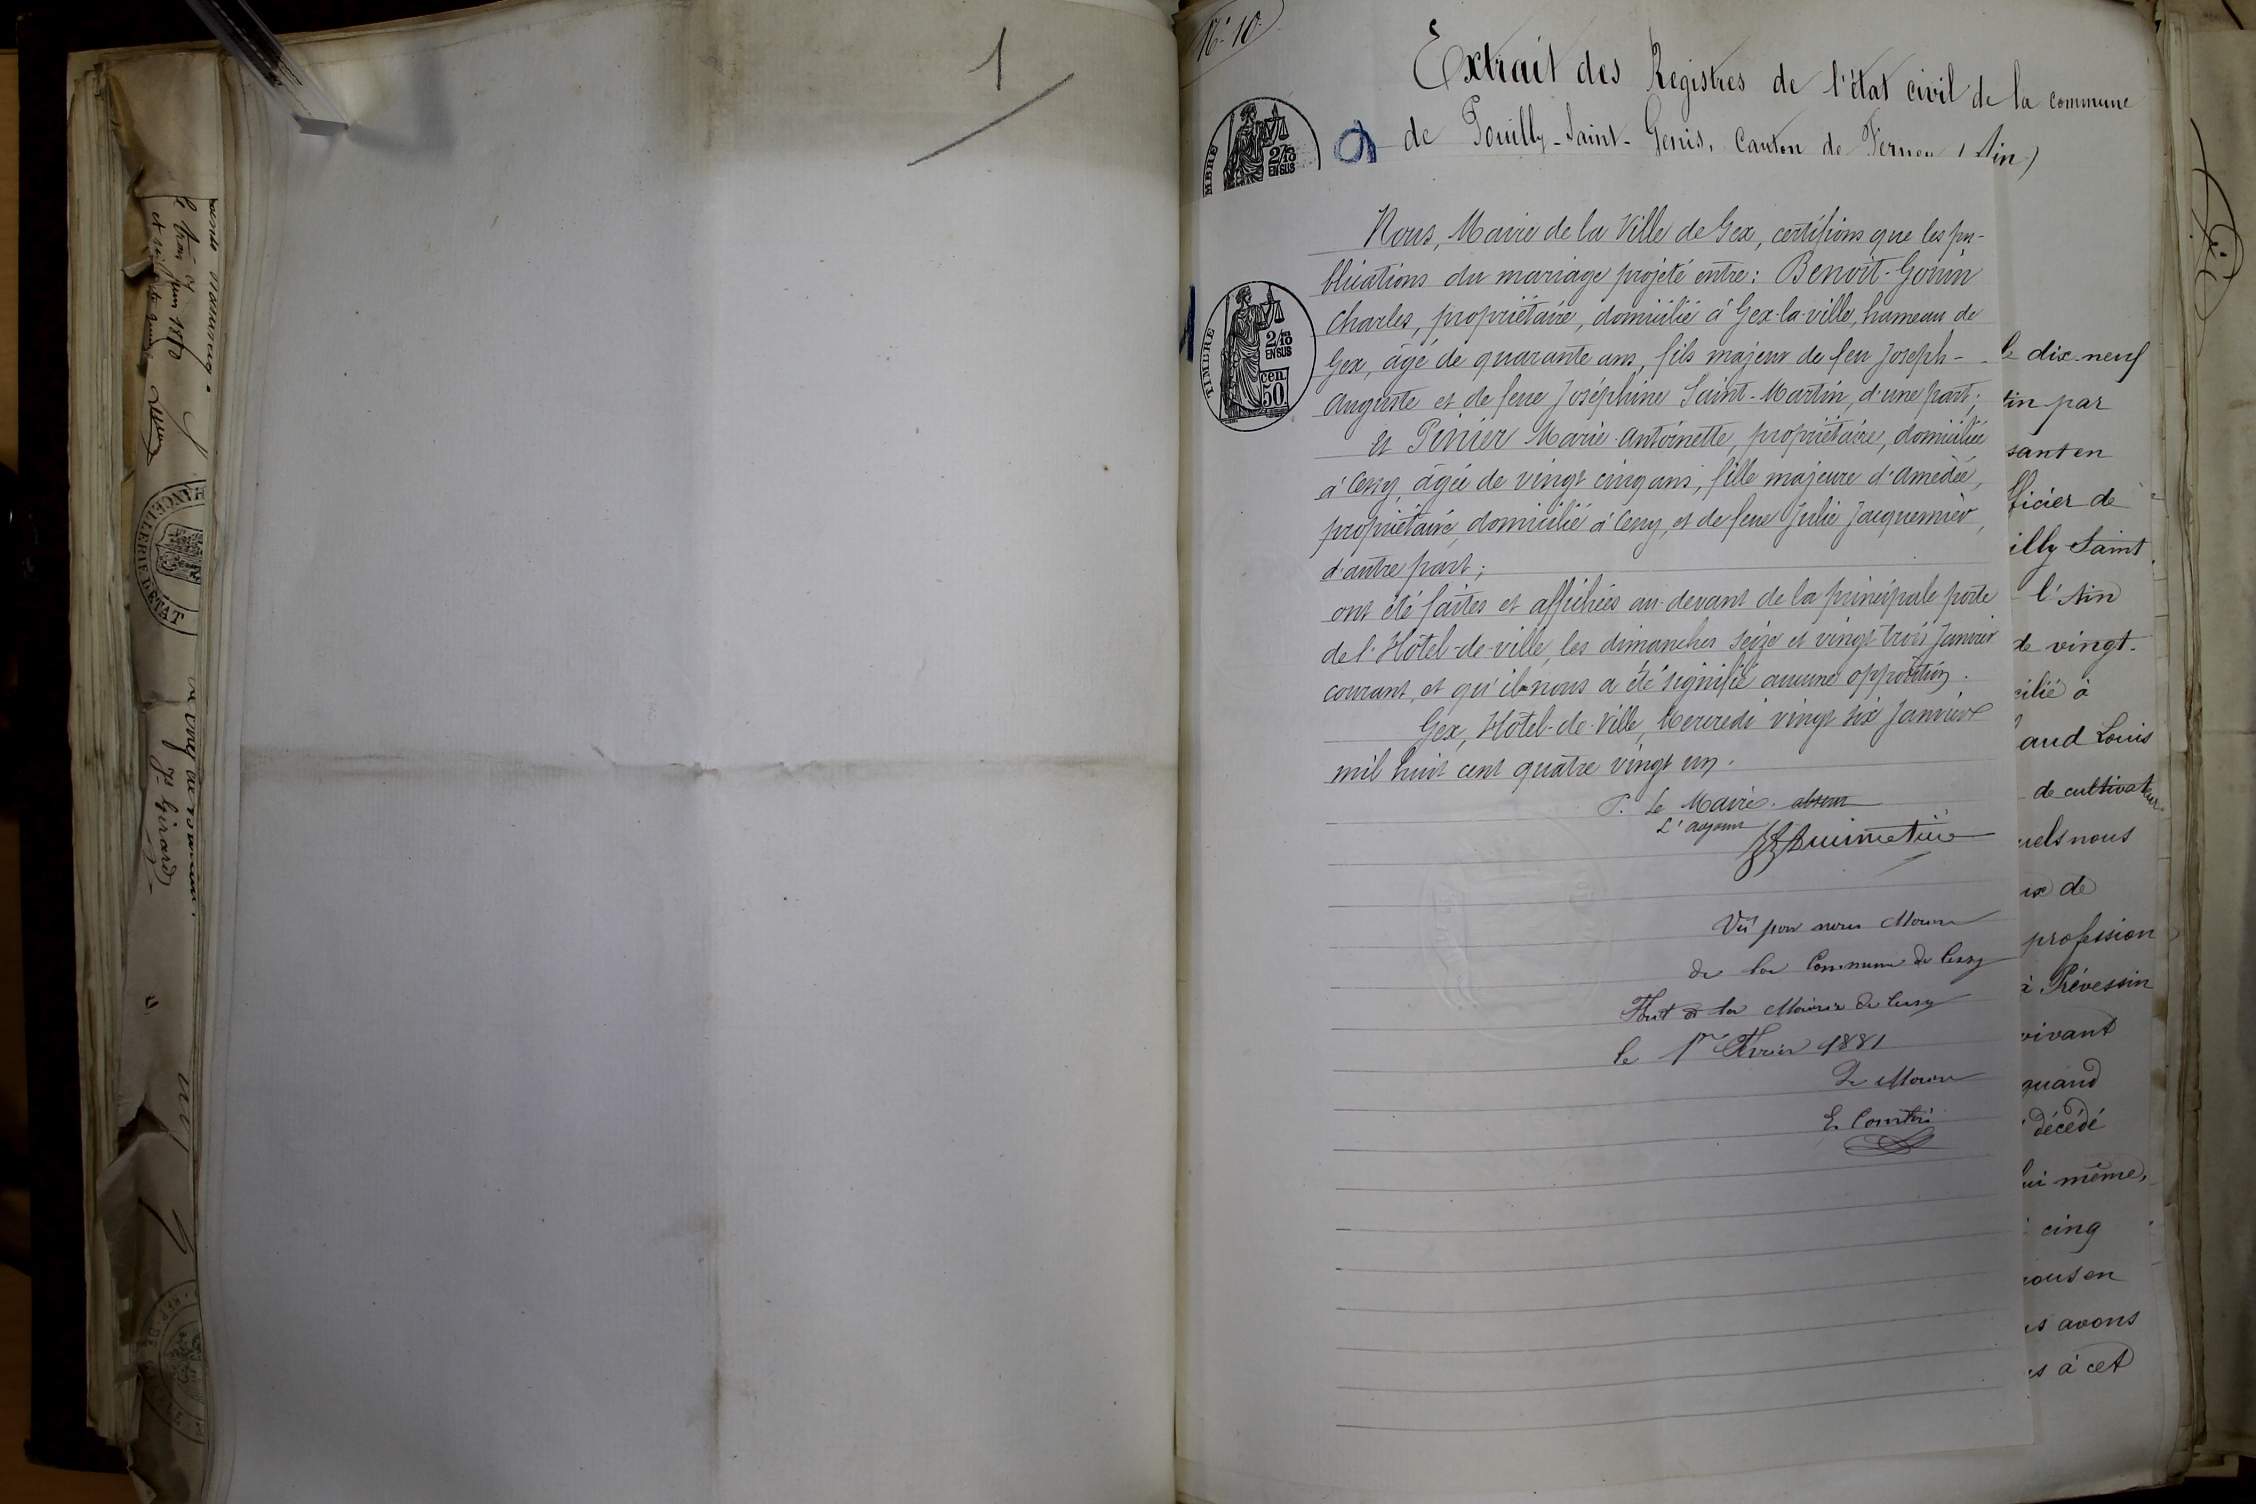 1
N.° 10.
Extrait des Registres de l'état civil de la commune
de Pouilly-Saint-Genis, Canton de Ferney (Ain)
MBRE
2/10
EN SUS
Nous, Maire de la Ville de Gex, certifions que les pu-
blications du mariage projeté entre: Benoit-Gonin
Charles, propriétaire, domicilié à Gex-la-ville, hameau de
Gex, âgé de quarante ans, fils majeur de feu Joseph-
Auguste et de feue Joséphine Saint-Martin, d'une part;
et Pinier Marie Antoinette, propriétaire, domiciliée
à Cessy, âgée de vingt cinq ans, fille majeure d'Amédée,
propriétaire, domicilié à Cessy, et de feue Julie Jacquemier,
d'autre part;
ont été faites et affichées au-devant de la principale porte
de l'Hôtel-de-ville, les dimanches seize et vingt-trois Janvier
courant, et qu'il nous a été signifié aucune opposition.
Gex, Hôtel-de-Ville, Mercredi vingt six Janvier
mil huit cent quatre vingt un.
P. Le Maire. absent
L'adjoint
TIMBRE
2/10
EN SUS
cen.
50
Vu par nous Maire
de la Commune de Cessy
Fait à la Mairie de Cessy
le 1er Février 1881
Le Maire
le dix-neuf
tin par
sant en
fficier de
illy Saint
l'Ain
de vingt-
cilié à
aud Louis
de cultivateur
uels nous
ux de
profession
à Prévessin
vivant
quand
décédé
lui même,
cinq
nous en
us avons
es à cet
HANCELLERIE D'ETAT